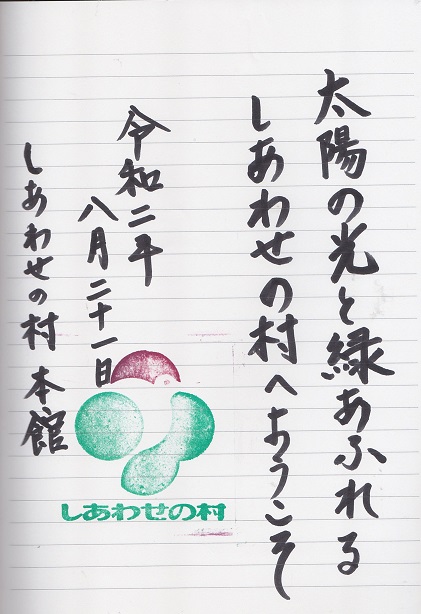 太陽の光と緑あふれる
しあわせの村へようこそ
令和二年
八月二十一日
しあわせの村 本館
しあわせの村